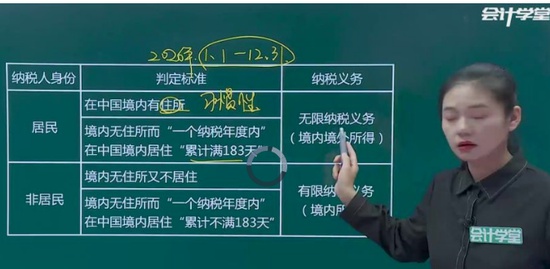 会计学堂
2026年.1.1-12.31
纳税人身份 判定标准 纳税义务
居民
在中国境内有住所 习惯性
境内无住所而“一个纳税年度内”
在中国境内居住“累计满183天”
无限纳税义务
(境内境外所得)
非居民
境内无住所又不居住
境内无住所而“一个纳税年度内”
在中国境内居住“累计不满183天”
有限纳税义务
(境内所
会计学堂